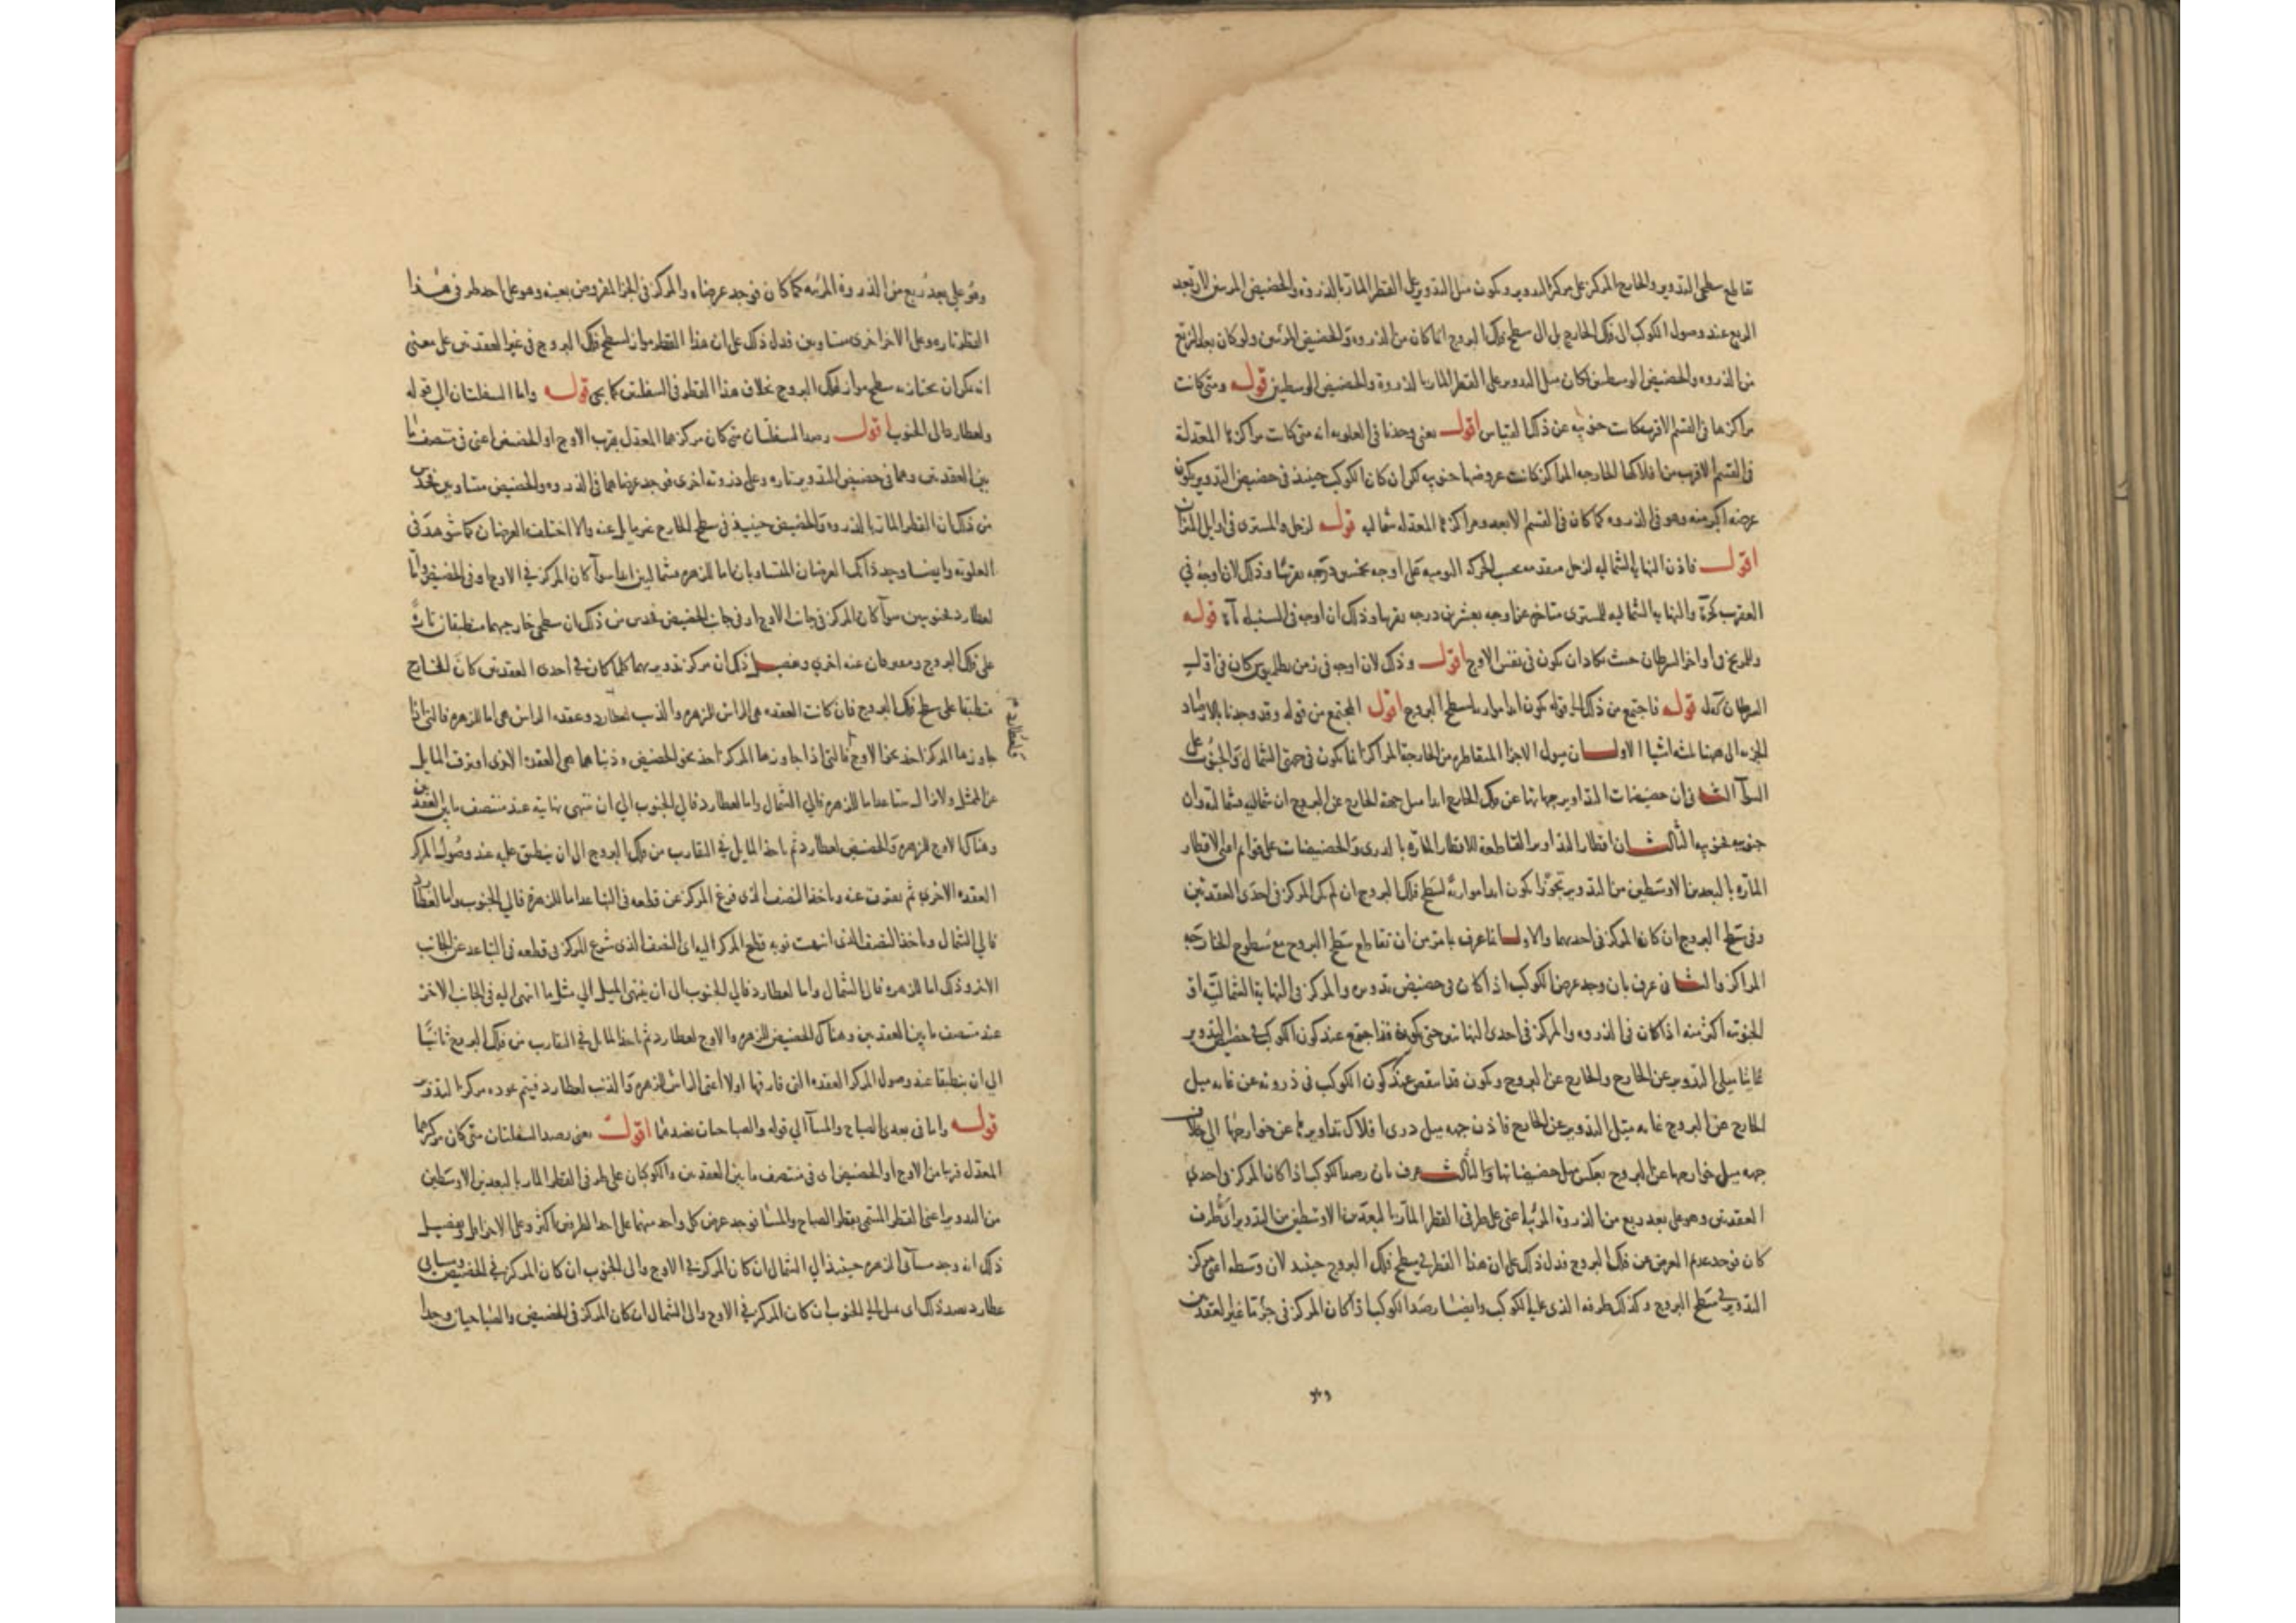 تقاطع سطحي التدوير والخارج المركز على مركز التدوير ويكون ميل التدوير على القطر المار بالذروة والحضيض المرئيين لان بعد
الربع عند وصول الكوكب الى فلك الخارج بل الى سطح فلك البروج انما كان من الذروة والحضيض المرئيين ولو كان بعد الربع
من الذروه والحضيض الوسطين لكان ميل التدوير على القطر المار بالذروة والحضيض الوسطين قوله ومتى كانت
مراكزها في القسم الاقرب كانت جنوبيه عن ذلك القياس اقول يعني وجدنا في العلويه انه متى كانت مراكزها المعدلة
في القسم الاقرب من افلاكها الخارجه المراكز كانت عروضها جنوبيه لكن ان كان الكوكب حينئذ في حضيض التدوير يكون
عرضه اكبر منه وهو في الذروه كما كان في القسم الابعد ومراكزها المعدله شماليه قوله لزحل والمشتري في اوايل الميزان
اقول فاذن النهاية الشماليه لزحل متقدمه بحسب الحركه اليوميه على اوجه بخمسين درجه تقريبا وذلك لان اوجه في
العقرب والنهاية الشماليه للمشتري متاخره عن اوجه بعشرين درجه تقريبا وذلك ان اوجه في السنبله قوله
وللمريخ في اواخر السرطان حيث يكاد ان يكون في نفس الاوج اقول وذلك لان اوجه في زمن بطلميوس كان في
السرطان قوله فاجتمع من ذلك الى قوله يكون ابدا موازيا لسطح البروج اقول المجتمع من قوله وقد وجدنا بالارصاد
الجزيه الى ههنا ثلثه اشيا الاول ان ميول الاجزا المتقاطره من الخارجة المراكز انما يكون في جهتي الشمال والجنوب على
السوآ الثاني ان حضيضات التداوير جهاتها عن فلك الخارج ابدا ميل جهة الخارج عن البروج ان شماليه فشماليه وان
جنوبيه فجنوبيه الثالث ان اقطار التداوير المقاطعة للاقطار المارة بالذرى والحضيضات على قوايم اعني الاقطار
المارة بالبعدين الاوسطين من التدوير تجوزا يكون ابدا موازية لسطح فلك البروج ان لم يكن المركز في احدى العقدتين
وفي سطح البروج ان كان المركز في احديهما والاول انما عرف بما مر من ان تقاطع سطح البروج مع سطوح الخارجة
المراكز والثاني عرف بان وجد عرض الكوكب اذا كان في حضيض تدويره والمركز في النهاية الشماليه او
الجنوبيه اكثر منه اذا كان في الذروه والمركز في احدى النهايتين حتى يكون قد اجتمع عند كون الكوكب في حضيض التدوير
غايتا ميلي التدوير عن الخارج والخارج عن البروج ويكون قد انتقص عند كون الكوكب في ذروته عن غايه ميل
الخارج عن البروج غايه ميل التدوير عن الخارج فاذن جهه ميل ذرى افلاك تداويرها عن خوارجها الى خلاف
جهه ميل خوارجها عن البروج بعكس ميل حضيضاتها والثالث عرف بان رصد الكوكب اذا كان المركز في احدى
العقدتين وهو على بعد ربع من الذروة المرئية اعني على طرفي القطر المار بالبعدين الاوسطين من التدوير اي طرف
كان فوجد عديم العرض عن فلك البروج فدل ذلك على ان هذا القطر في سطح فلك البروج حينئذ لان وسطه اعني مركز
التدوير في سطح البروج وكذلك طرفه الذي عليه الكوكب وايضا رصد الكوكب اذا كان المركز في جزء ما غير العقدتين
وهو
وهو على بعد ربع من الذروة المرئيه كما كان فوجد عرضاه والمركز في الجزا المفروض بعينه وهو على احد طرفي هذا
القطر تاره وعلى الاخر اخرى متساويين فدل ذلك على ان هذا القطر مواز لسطح فلك البروج في غير العقدتين على معنى
انه يمكن ان يجتازه سطح مواز لفلك البروج بخلاف هذا القطر في السفليين كما يجي قوله واما السفليتان الى قوله
ولعطارد الى الجنوب اقول رصد السفليتان متى كان مركزهما المعدل بقرب الاوج او الحضيض اعني في منتصف ما
بين العقدتين وهما في حضيض التدوير تاره وعلى ذروته اخرى فوجد عرضاهما في الذروه والحضيض متساويين فحدس
من ذلك ان القطر المار بالذروه والحضيض حينئذ في سطح الخارج غير مايل عنه والا اختلف العرضان كما شوهد في
العلويه وايضا وجد ذانك العرضان المتساويان اما للزهره فشماليين ابدا سوآ كان المركز في الاوج او في الحضيض واما
لعطارد فجنوبيين سوآ كان المركز في جانب الاوج او في جانب الحضيض فحدس من ذلك ان سطحي خارجيهما منطبقان تارة
على فلك البروج ومفترقان عنه اخرى وتفصيل ذلك ان مركز تدويريهما كلما كان في احدى العقدتين كان الخارج
منطبقا على سطح فلك البروج فان كانت العقده هي الراس للزهره والذنب لعطارد وعقده الراس هي اما للزهره فالتي اذا
جاوزها المركز اخذ نحو الاوج فالتي اذا جاوزها المركز اخذ نحو الحضيض وذنباهما هي العقدة الاخرى افترق المايل
فلعطارد
عن الممثل ولا يزال يتباعد اما للزهره فالى الشمال واما لعطارد فالى الجنوب الى ان تنتهي نهايته عند منتصف ما بين العقدتين
وهناك الاوج للزهره والحضيض لعطارد ثم ياخذ المايل في التقارب من فلك البروج الى ان ينطبق عليه عند وصول المركز
العقده الاخرى ثم يفترق عنه وياخذ النصف الذي فرغ المركز عن قطعه في التباعد اما للزهرة فالى الجنوب واما لعطارد
فالى الشمال وياخذ النصف الذي انتهت نوبه قطع المركز اليه اي النصف الذي شرع المركز في قطعه في التباعد عن الجانب
الاخر وذلك اما للزهره فالى الشمال واما لعطارد فالى الجنوب الى ان ينتهي الميل الى مثل ما انتهى اليه في الجانب الاخر
عند منتصف ما بين العقدتين وهناك الحضيض للزهره والاوج لعطارد ثم ياخذ المايل في التقارب من فلك البروج ثانيا
الى ان ينطبقا عند وصول المركز العقده التي فارقها اولا اعني الراس للزهره والذنب لعطارد فيتم عوده مركز التدوير
قوله واما في بعدي الصباح والمسآ الى قوله والصباحات بضدهما اقول يعني رصد السفليتان متى كان مركزهما
المعدل قريبا من الاوج او الحضيض اي في منتصف ما بين العقدتين والكوكبان على طرفي القطر المار بالبعدين الاوسطين
من التدوير اعني القطر المسمى بقطر الصباح والمسا فوجد عرض كل واحد منهما على احد الطرفين اكثر وعلى الاخر اقل وتفصيل
ذلك انه وجد مسآئي الزهره حينئذ الى الشمال ان كان المركز في الاوج والى الجنوب ان كان المركز في الحضيض ومسايي
عطارد بضد ذلك اي ميل الى الجنوب ان كان المركز في الاوج والى الشمال ان كان المركز في الحضيض والصباحيان وجدا